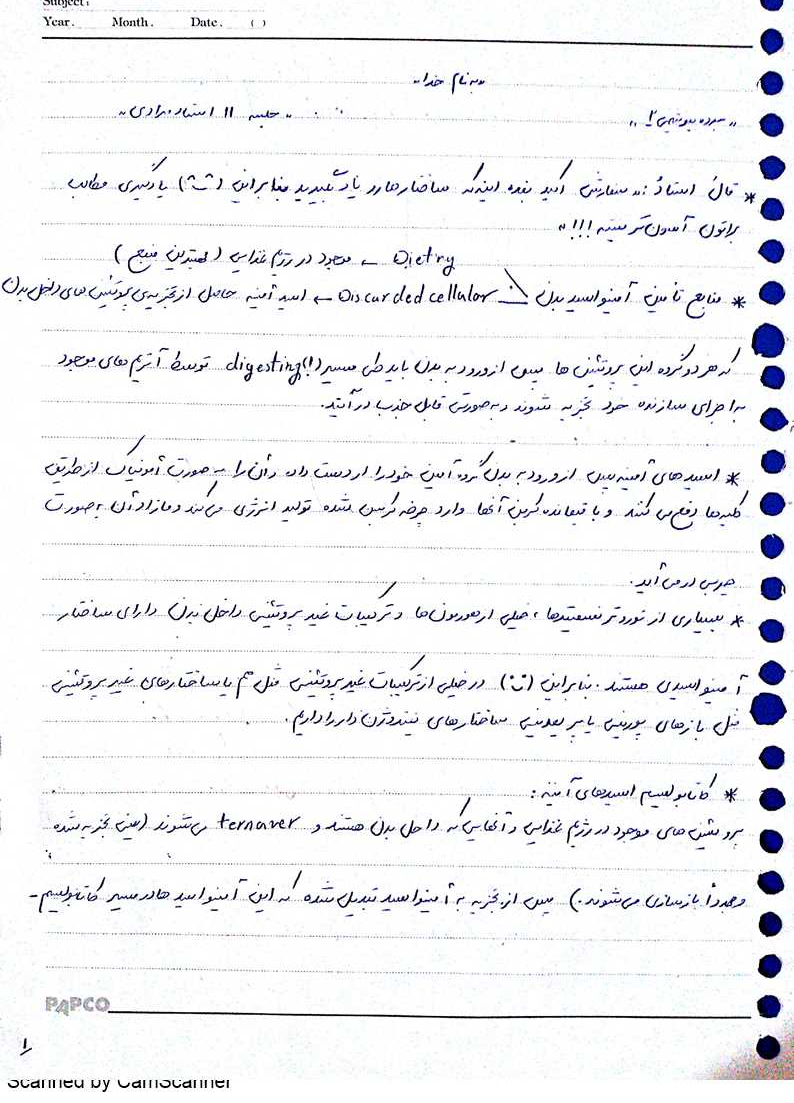 Subject:
Year. Month. Date. ( )
"به نام خدا"
"جزوه بیوشیمی ۲" "جلسه ۱۱ استاد مرادی"
* قالَ استاذُ: سفارش اکید بنده اینه که ساختارها رو یاد بگیرید بنابراین یادگیری مطالب
براتون آسون‌تر میشه !!!"
Dietry ← موجود در رژیم غذایی (مهمترین منبع)
* منابع تأمین آمینواسید بدن
Discarded cellular ← اسید آمینه حاصل از تجزیه‌ی پروتئین های داخل بدن
که هر دو گروه این پروتئین ها پس از ورود به بدن باید طی مسیر (!) digesting توسط آنزیم های موجود
به اجزای سازنده خود تجزیه شوند و به صورت قابل جذب در آیند.
* اسید های آمینه پس از ورود به بدن گروه آمین خود را از دست داده و آن را به صورت آمونیاک از طریق
کلیه‌ها دفع می کنند و باقیمانده کربن آنها وارد چرخه کربس شده تولید انرژی می‌کند و مازاد آن به صورت
چربی در می آید.
* بسیاری از نوروترنسمیترها، خیلی از هورمون‌ها و ترکیبات غیر پروتئینی داخل بدن دارای ساختار
آمینواسیدی هستند. بنابراین در خیلی از ترکیبات غیر پروتئینی مثل هم یا ساختارهای غیر پروتئینی
مثل بازهای پورینی یا پیریمیدینی ساختارهای نیتروژن دار را داریم.
* کاتابولیسم اسیدهای آمینه:
پروتئین های موجود در رژیم غذایی و آنهایی که داخل بدن هستند و ternover می‌شوند (یعنی تجزیه شده
و مجدداً بازسازی می‌شوند.) پس از تجزیه به آمینواسید تبدیل شده که این آمینواسید ها در مسیر کاتابولیسم-
PAPCO
۱
Scanned by CamScanner